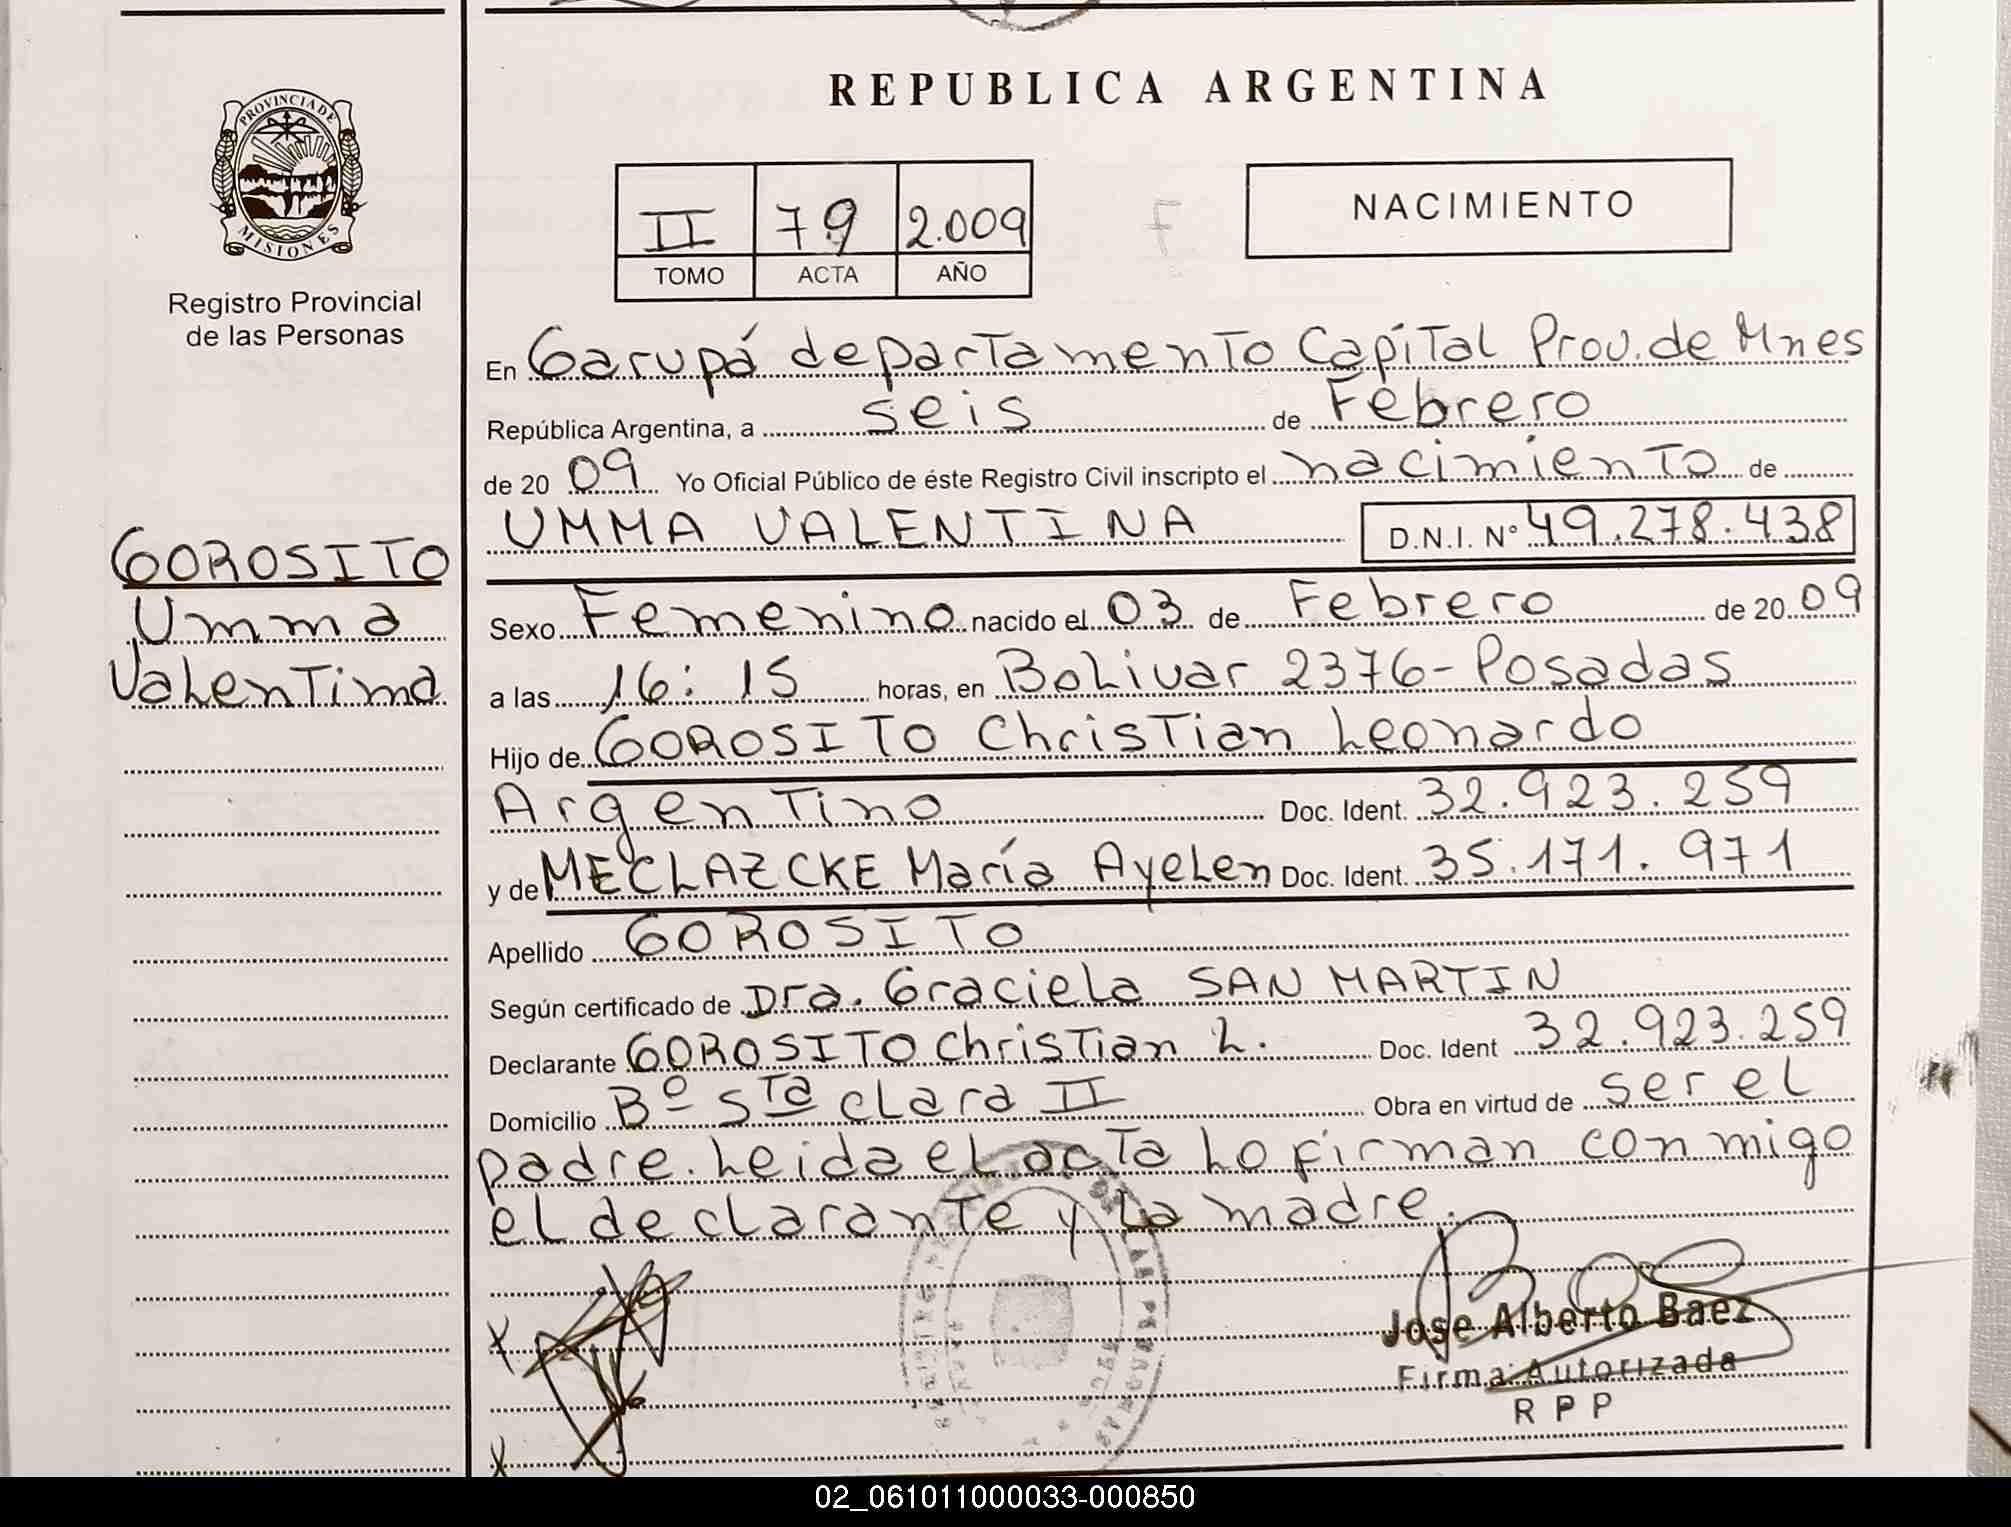 REPUBLICA ARGENTINA
PROVINCIA DE
MISIONES
Registro Provincial
de las Personas
II 79 2.009
TOMO ACTA AÑO
F
NACIMIENTO
En Garupá departamento Capital Prov. de Mnes
República Argentina, a seis de Febrero
de 20 09 Yo Oficial Público de éste Registro Civil inscripto el nacimiento de
UMMA VALENTINA D.N.I. Nº 49.278.438
GOROSITO
Umma
Valentina
Sexo Femenino nacido el 03 de Febrero de 20 09
a las 16:15 horas, en Bolivar 2376-Posadas
Hijo de GOROSITO Christian Leonardo
Argentino Doc. Ident. 32.923.259
y de MECLAZCKE María Ayelen Doc. Ident. 35.171.971
Apellido GOROSITO
Según certificado de Dra. Graciela SAN MARTIN
Declarante GOROSITO Christian L. Doc. Ident 32.923.259
Domicilio Bº Sta Clara II Obra en virtud de ser el
padre. Leida el acta lo firman conmigo
el declarante y la madre.
X
X
Jose Alberto Baez
Firma Autorizada
R P P
02_061011000033-000850